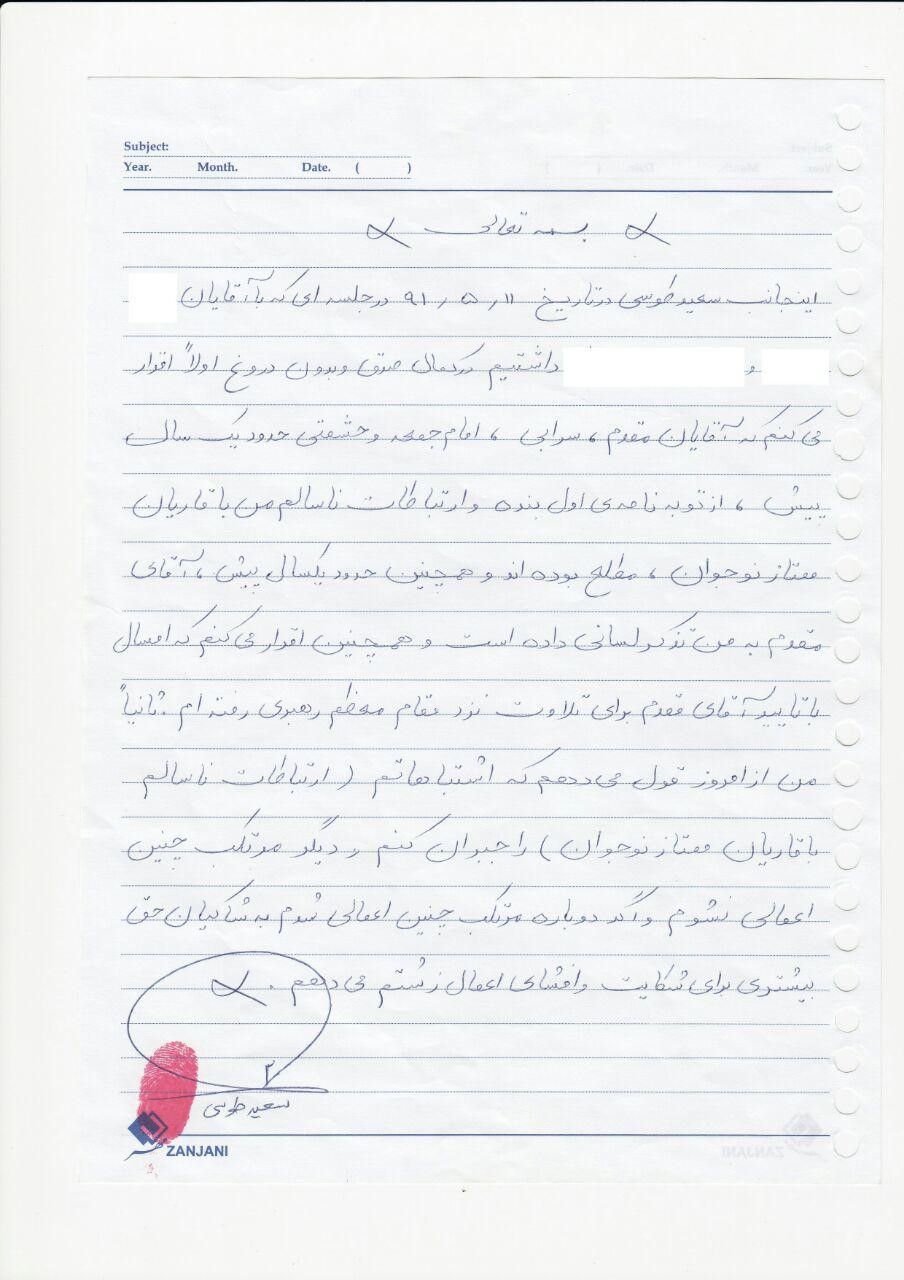 Subject:
Year. Month. Date. ( )
بسمه تعالی
اینجانب سعید طوسی در تاریخ ۹۱٫۵٫۱۱ در جلسه ای که با آقایان
و داشتیم در کمال صدق و بدون دروغ اولاً اقرار
می کنم که آقایان مقدم ، سرابی ، امام جمعه و حشمتی حدود یک سال
پیش ، از توبه نامه ی اول بنده و ارتباطات ناسالم من با قاریان
ممتاز نوجوان ، مطلع بوده اند و همچنین حدود یکسال پیش ، آقای
مقدم به من تذکر لسانی داده است و همچنین اقرار می کنم که امسال
با تایید آقای مقدم برای تلاوت نزد مقام معظم رهبری رفته ام . ثانیاً
من از امروز قول می دهم که اشتباهاتم ( ارتباطات ناسالم
با قاریان ممتاز نوجوان ) را جبران کنم و دیگر مرتکب چنین
اعمالی نشوم و اگر دوباره مرتکب چنین اعمالی شوم به شاکیان حق
بیشتری برای شکایت و افشای اعمال زشتم می دهم .
سعید طوسی
ZANJANI